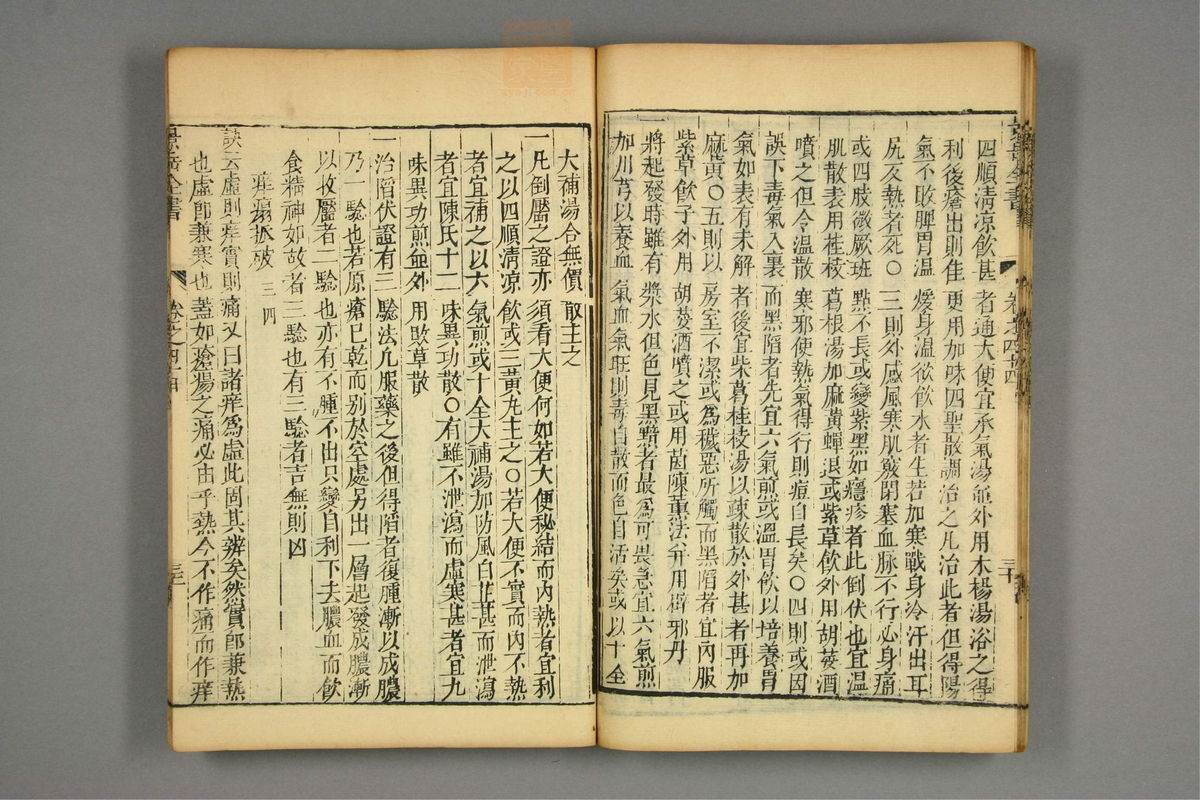 四順清凉飲甚者通大便宜承氣湯並外用水楊湯浴之得
利後瘡出則佳更用加味四聖散調治之凡治此者但得陽
氣不敗脾胃溫煖身溫欲飲水者生若加寒戰身冷汗出耳
尻反熱者死○三則外感風寒肌竅閉塞血脉不行必身痛
或四肢微厥斑點不長或變紫黑如癮疹者此倒伏也宜溫
肌散表用桂枝葛根湯加麻黃蟬退或紫草飲外用胡荽酒
噴之但令溫散寒邪使熱氣得行則痘自長矣○四則或因
誤下毒氣入裏而黑陷者先宜六氣煎或溫胃飲以培養胃
氣如表有未解者後宜柴葛桂枝湯以疎散於外甚者再加
麻黃○五則以房室不潔或為穢惡所觸而黑陷者宜內服
紫草飲子外用胡荽酒噴之或用茵陳薰法并用辟邪丹
一將起發時雖有漿水但色見黑黯者最為可畏急宜六氣煎
加川芎以養血氣血氣旺則毒自散而色自活矣或以十全
卷之四十四
三十
大補湯合無價散主之
一凡倒靨之證亦須看大便何如若大便秘結而內熱者宜利
之以四順清凉飲或三黃丸主之○若大便不實而內不熱
者宜補之以六氣煎或十全大補湯加防風白芷甚而泄瀉
者宜陳氏十二味異功散○有雖不泄瀉而虛寒甚者宜九
味異功煎並外用敗草散
一治陷伏證有三驗法凡服藥之後但得陷者復腫漸以成膿
乃一驗也若原瘡已乾而別於空處另出一層起發成膿漸
以收靨者二驗也亦有不腫不出只變自利下去膿血而飲
食精神如故者三驗也有三驗者吉無則凶
痒瘍抓破 三四
訣云虛則痒實則痛又曰諸痒為虛此固其辨矣然實即兼熱
也虛即兼寒也蓋如瘡瘍之痛必由乎熱今不作痛而作痒
景岳全書
卷之四十四
三十